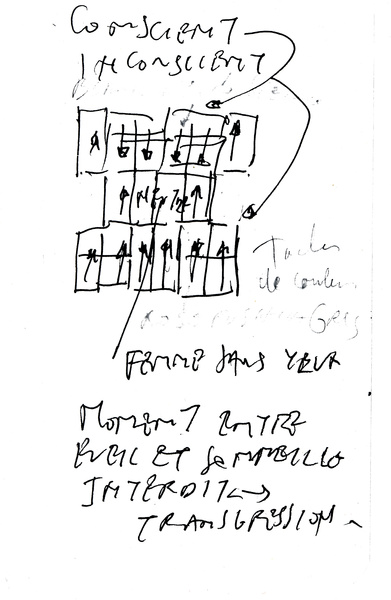 CONSCIENT
INCONSCIENT
Taches
de couleur
GRIS
FEMME SANS YEUX
MOMENT ENTRE
EVEIL ET SOMMEIL
INTERDIT ↔
TRANSGRESSION